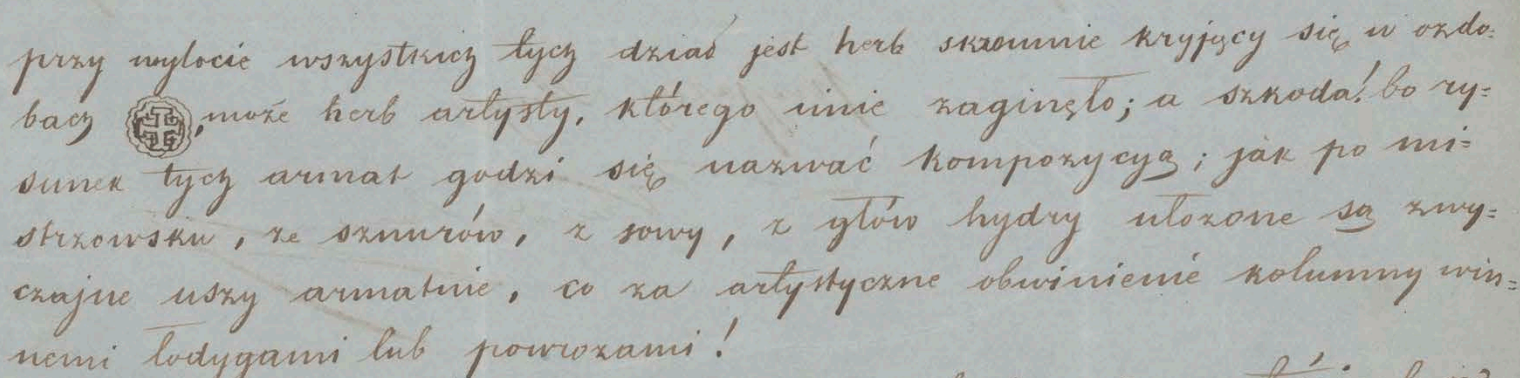 przy wylocie wszystkich tych dział jest herb skromnie kryjący się w ozdo=
bach , może herb artysty, którego imie zaginęło; a szkoda! bo ry=
sunek tych armat godzi się nazwać kompozycyą; jak po mi=
strzowsku, ze sznurów, z sowy, z głów hydry ułożone są zwy=
czajne uszy armatnie, co za artystyczne obwinienie kolumny win=
nemi łodygami lub powrozami!